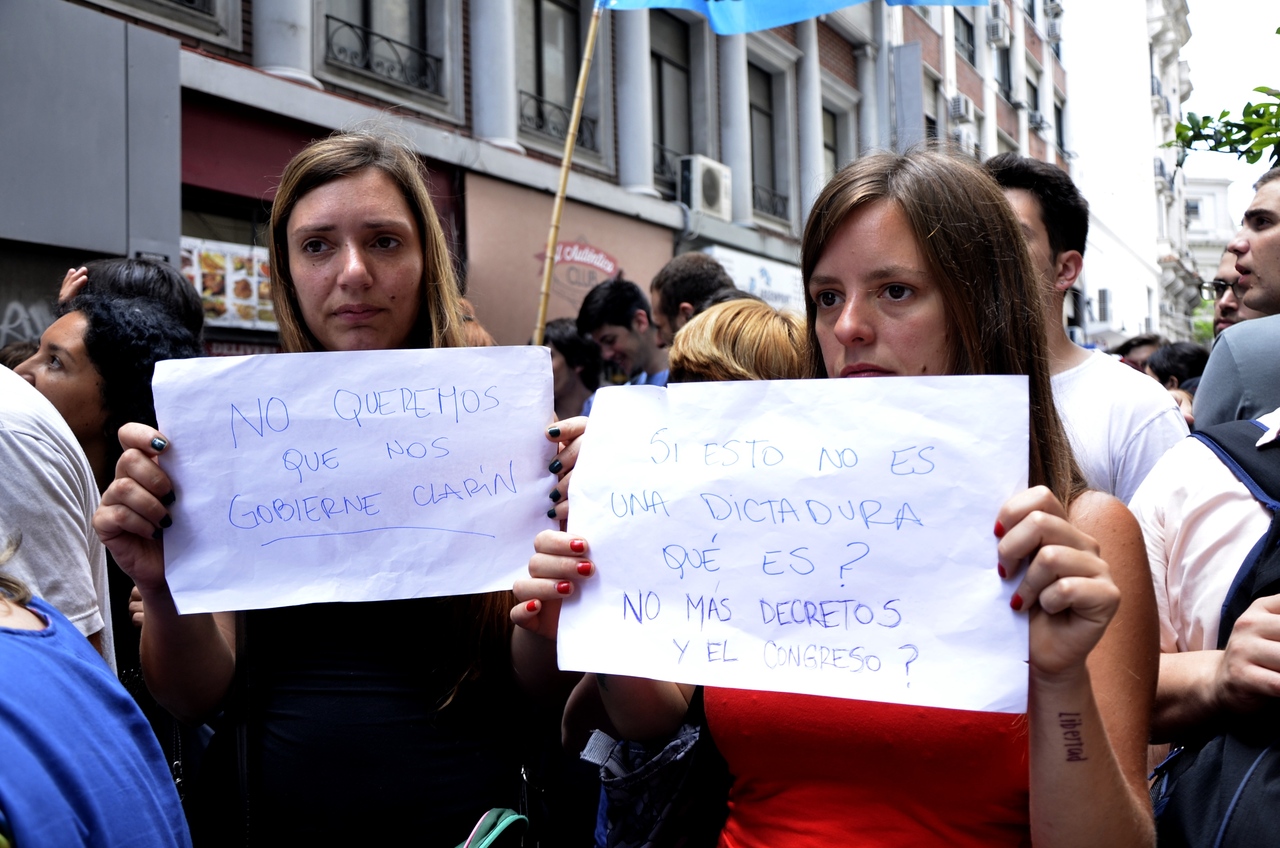 NO QUEREMOS
QUE NOS
GOBIERNE CLARÍN
SI ESTO NO ES
UNA DICTADURA
QUÉ ES?
NO MÁS DECRETOS
Y EL CONGRESO?
libertad
Auténtico
CLUB